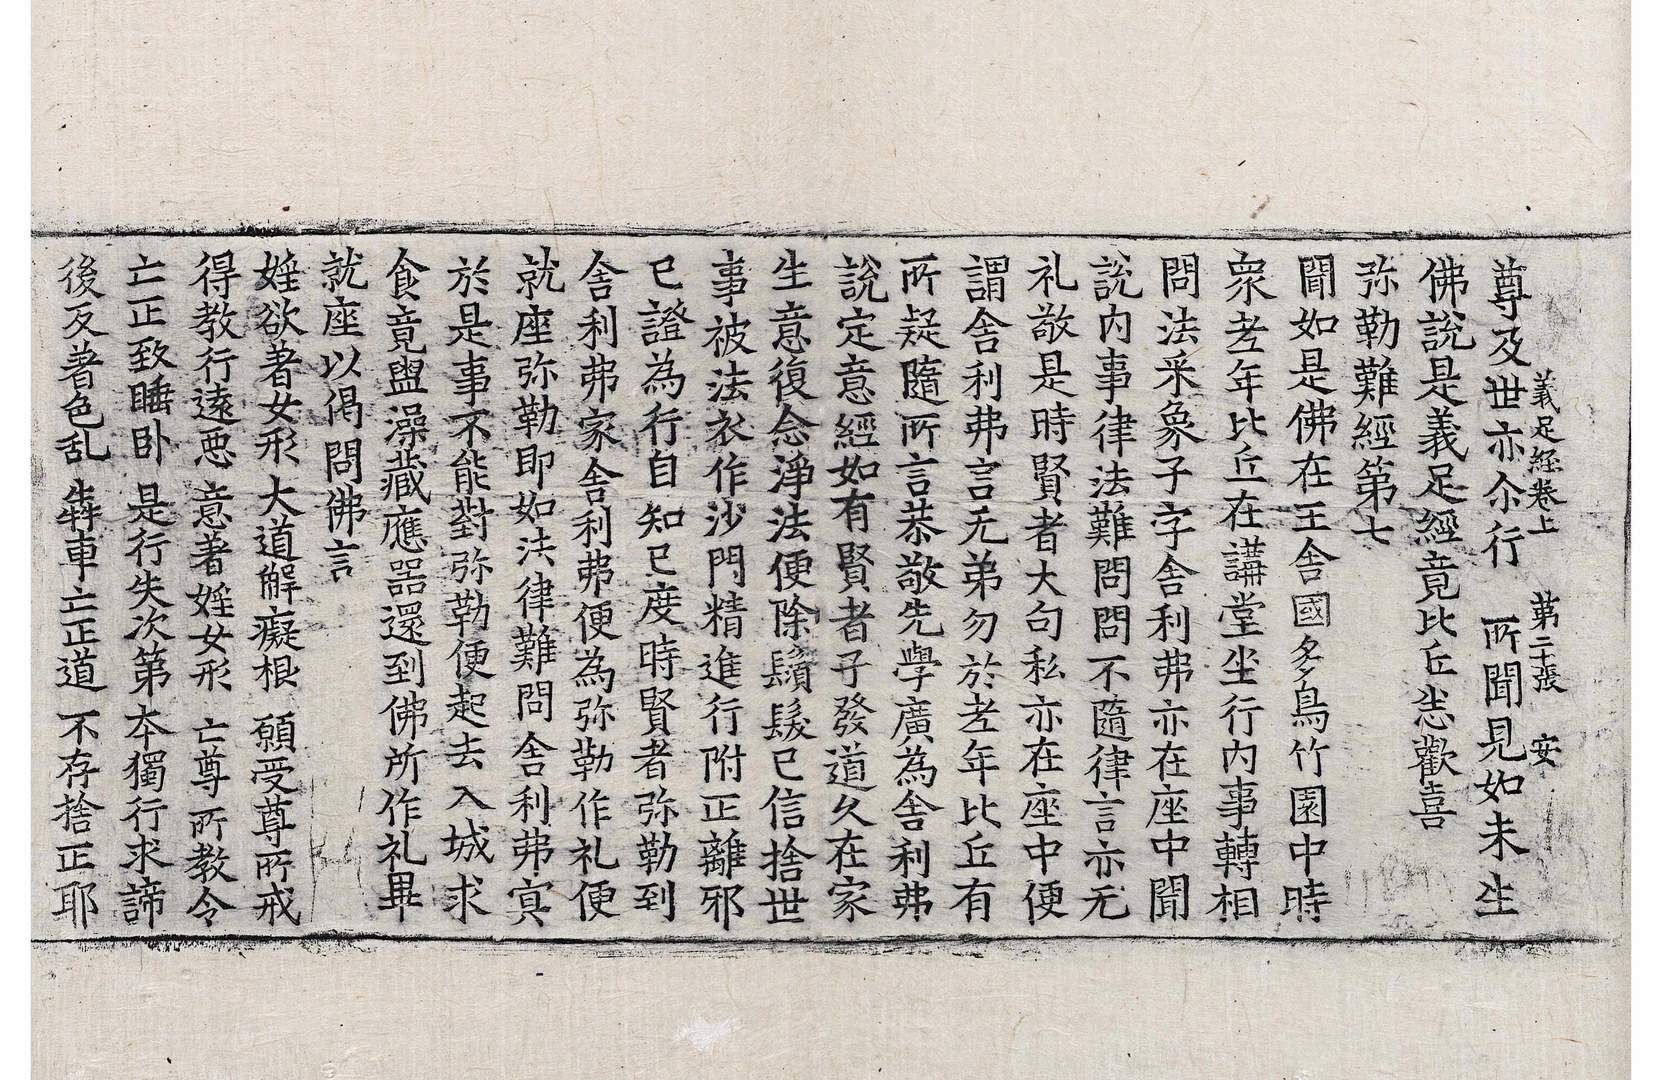 義足経卷上　第二十張　安
尊及世亦尒行　所聞見如未生
佛說是義足經竟比丘悉歡喜
弥勒難經第七
聞如是佛在王舍國多鳥竹園中時
衆老年比丘在講堂坐行内事轉相
問法采象子字舍利弗亦在座中聞
說内事律法難問問不隨律言亦无
礼敬是時賢者大句私亦在座中便
謂舍利弗言无弟勿於老年比丘有
所疑隨所言恭敬先學廣為舍利弗
說定意經如有賢者子發道久在家
生意復念淨法便除鬚髮已信捨世
事被法衣作沙門精進行附正離邪
已證為行自知已度時賢者弥勒到
舍利弗家舍利弗便為弥勒作礼便
就座弥勒即如法律難問舍利弗寘
於是事不能對弥勒便起去入城求
食竟盥澡藏應器還到佛所作礼畢
就座以偈問佛言
婬欲著女形　大道解癡根　願受尊所戒
得教行遠惡　意著婬女形　亡尊所教令
亡正致睡卧　是行失次第　本獨行求諦
後反著色乱　犇車亡正道　不存捨正耶